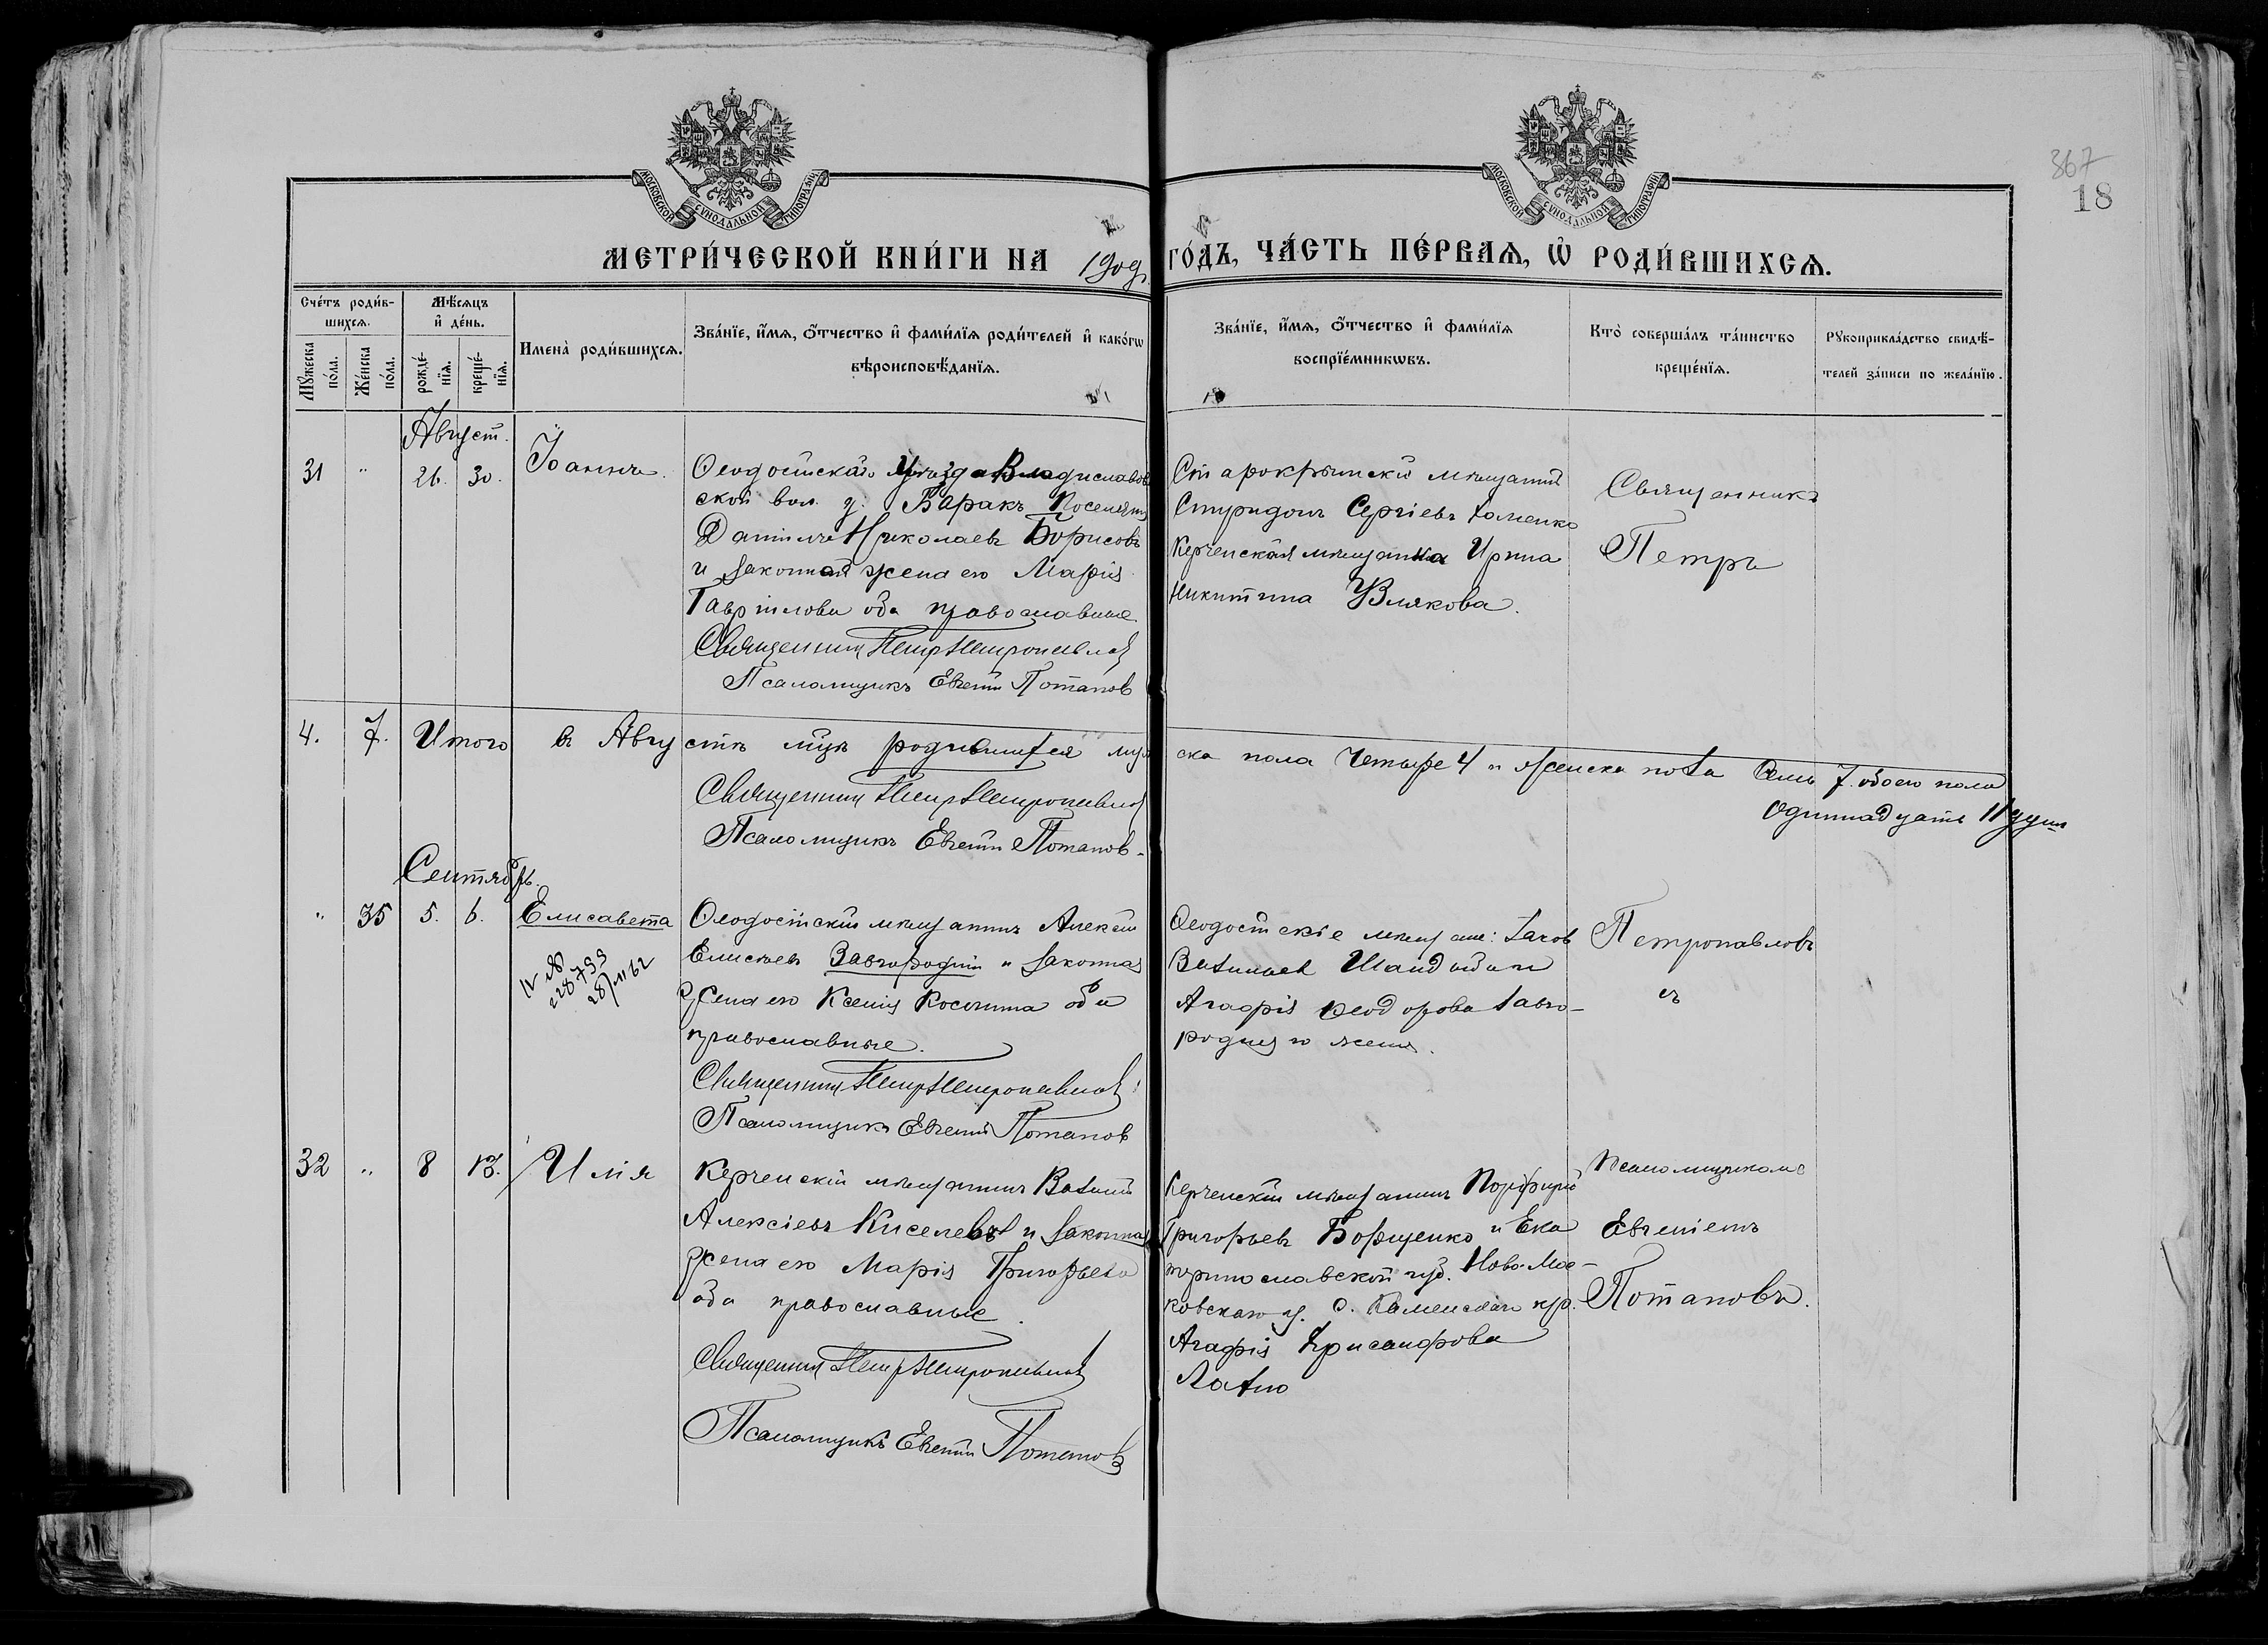 367
18
МОСКОВСКОЙ СУНОДАЛЬНОЙ ТИПОГРАФІИ
МОСКОВСКОЙ СУНОДАЛЬНОЙ ТИПОГРАФІИ
МЕТРИ́ЧЕСКОЙ КНИ́ГИ НА 1909 ГО́ДЪ, ЧА́СТЬ ПЕ́РВАѦ, Ѡ҆ РОДИ́ВШИХСѦ.
Сче́тъ роди́в-
шихсѧ.
Мꙋ́жеска по́ла.
Же́нска по́ла.
Мѣ́сѧцъ
и҆ де́нь.
рожде́-
нїѧ.
креще́-
нїѧ.
Имена̀ роди́вшихсѧ.
Зва́нїе, и҆́мѧ, ѻ҆́тчество и҆ фами́лїѧ роди́телей и҆ како́гѡ
вѣроисповѣ́данїѧ.
Зва́нїе, и҆́мѧ, ѻ҆́тчество и҆ фами́лїѧ
воспрїе́мникѡвъ.
Кто̀ соверша́лъ та́инство
креще́нїѧ.
Рꙋкоприкла́дство свидѣ́-
телей за́писи по жела́нїю.
Август.
31 " 26. 30. Іоаннъ.
Ѳеодосійскаго Уѣзда Владиславов
ской вол. д. Баракъ Поселянъ
Даниилъ Николаевъ Борисовъ
и законная жена его Марія
Гаврилова оба православные.
Священникъ Петр Петропавлов
Псаломщикъ Евгеній Потапов
Старокрымскій мѣщанин
Спиридонъ Сергіевъ Хоменко
Керченская мѣщанка Ирина
Никитина
Священникъ
Петръ
4. 7. Итого в Августѣ мцѣ родившихся муж ска пола Четыре 4 и Женска пола Семь 7. обоего пола
Одиннадцать 11 душ
Священникъ Петр Петропавлов
Псаломщикъ Евгеній Потапов.
Сентябрь.
" 35 5. 6. Елисавета
28793
Ѳеодосійскій мѣщанинъ Алексѣй
Елисѣевъ Завгородній и законная
Жена его Ксенія Косьмина оба
православные.
Священникъ Петр Петропавлов
Псаломщикъ Евгеній Потапов
Ѳеодосійскіе мѣщане:
Васильев
Агафія Ѳеодорова Завго-
родняго жена.
Петропавловъ
съ
32 " 8 13. Илія
Керченскій мѣщанинъ Василій
Алексіевъ Киселевъ и законная
Жена его Марія Григорьева
оба православные.
Священникъ Петр Петропавлов
Псаломщикъ Евгеній Потапов
Керченскій мѣщанинъ Порфирій
Григорьевъ Борщенко и Ека
теринославской губ. Ново-Мос-
ковскаго у. с. кр.
Агафія Хрисанфова
Псаломщикомъ
Евгеніемъ
Потаповъ.